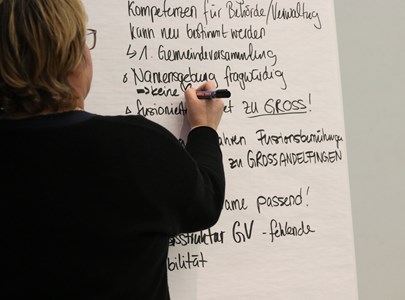 Kompetenzen für Behörde/Verwaltung
kann neu bestimmt werden
↳ 1. Gemeindeversammlung
Namensgebung fragwürdig
⇒ keine
fusioniert et ZU GROSS!
ahren Fusionsbemühungen
zu GROSSANDELFINGEN
ame passend!
struktur GV - fehlende
bilität